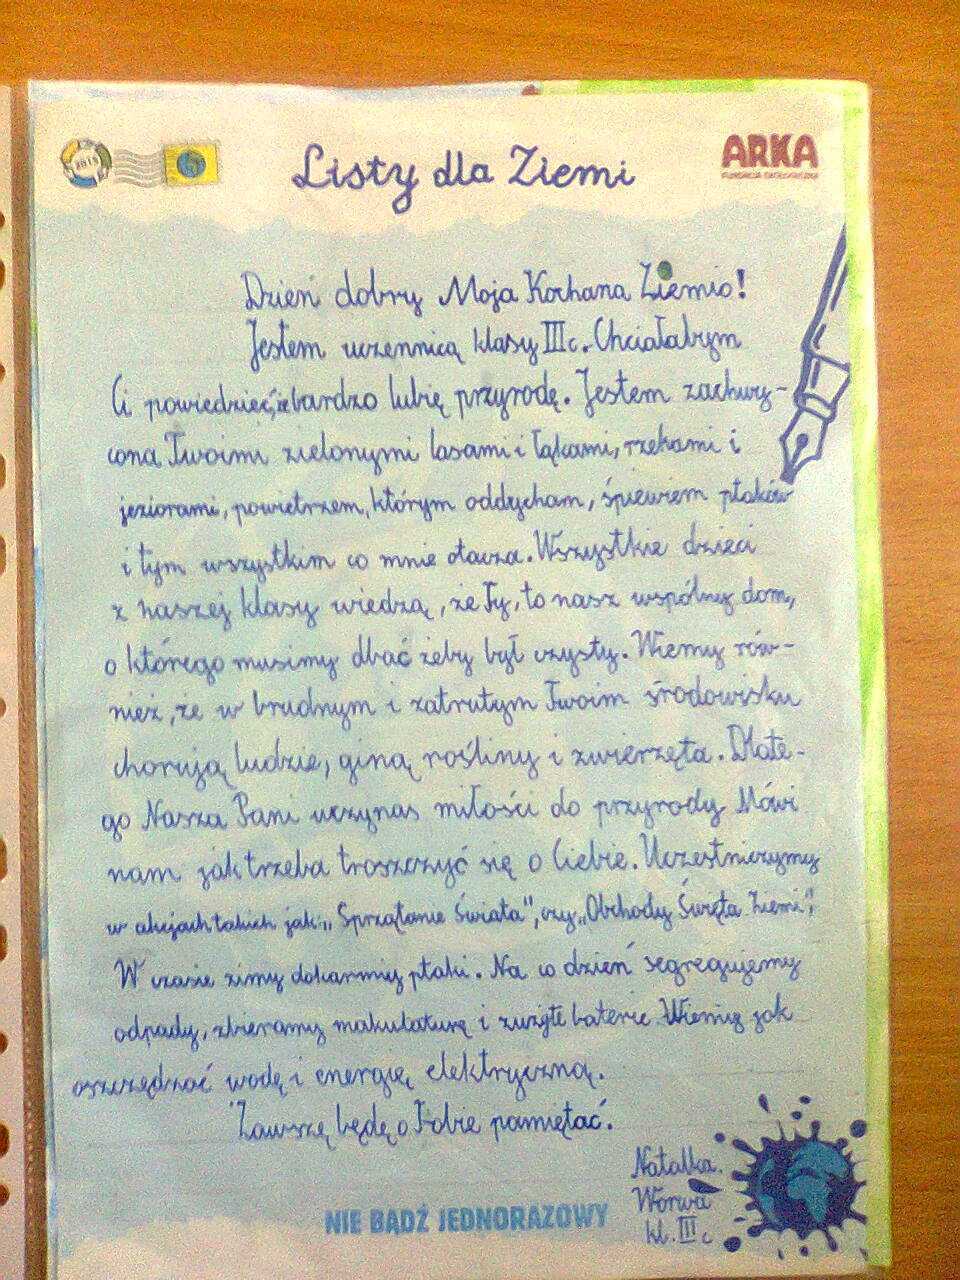 2015
Listy dla Ziemi
ARKA
FUNDACJA EKOLOGICZNA
Dzień dobry Moja Kochana Ziemio!
Jestem uczennicą klasy III c. Chciałabym
Ci powiedzieć, że bardzo lubię przyrodę. Jestem zachwy-
cona Twoimi zielonymi lasami i łąkami, rzekami i
jeziorami, powietrzem, którym oddycham, śpiewem ptaków
i tym wszystkim co mnie otacza. Wszystkie dzieci
z naszej klasy wiedzą, że Ty, to nasz wspólny dom,
o którego musimy dbać żeby był czysty. Wiemy rów-
nież, że w brudnym i zatrutym Twoim środowisku
chorują ludzie, giną rośliny i zwierzęta. Dlate-
go Nasza Pani uczy nas miłości do przyrody Mówi
nam jak trzeba troszczyć się o Ciebie. Uczestniczymy
w akcjach takich jak: „Sprzątanie Świata", czy „Obchody Święta Ziemi".
W czasie zimy dokarmiy ptaki. Na co dzień segregujemy
odpady, zbieramy makulaturę i zużyte baterie. Wiemy jak
oszczędzać wodę i energię elektryczną.
Zawszę będę o Tobie pamiętać.
Natalka
Worwa
kl. III c
NIE BĄDŹ JEDNORAZOWY